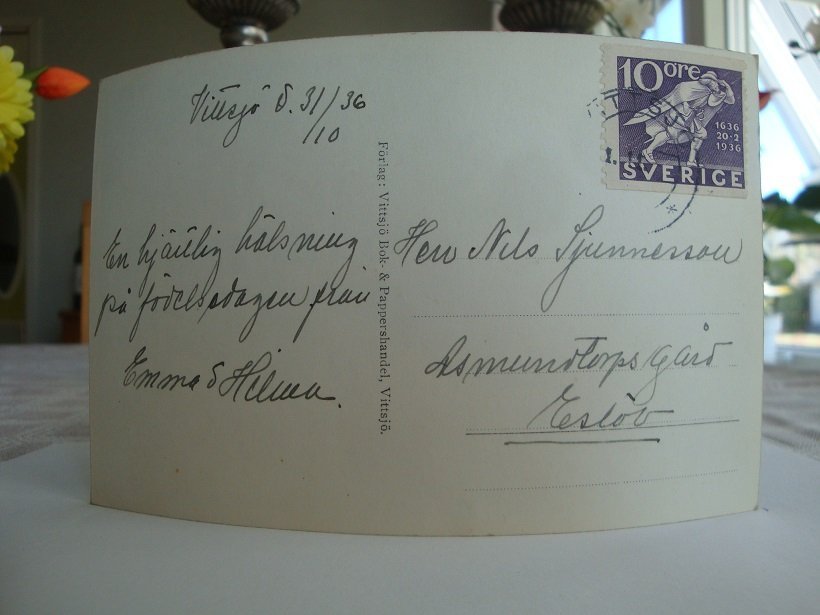 Vittsjö d. 31/10 36
En hjärtlig hälsning
på födelsedagen från
Emma & Hilma.
Förlag: Vittsjö Bok- & Pappershandel, Vittsjö.
10 öre
1636
20-2
1936
SVERIGE
Herr Nils Sjunnesson
Asmundtorps gård
Eslöv